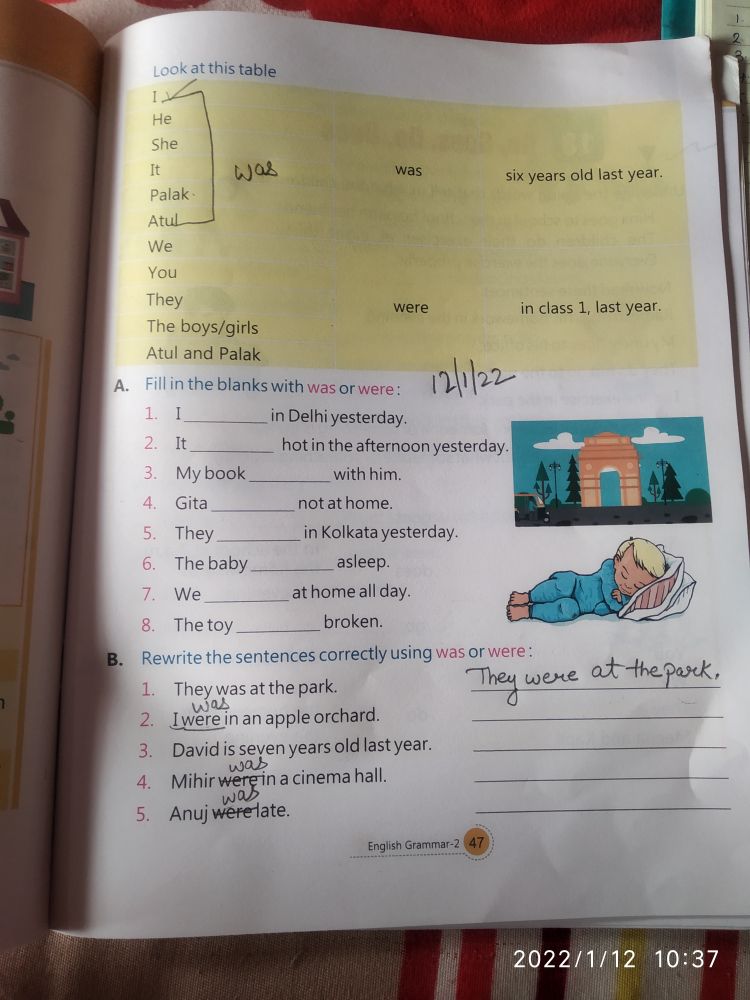 Look at this table
I
He
She
It was was six years old last year.
Palak
Atul
We
You
They were in class 1, last year.
The boys/girls
Atul and Palak
A. Fill in the blanks with was or were: 12/1/22
1. I __________ in Delhi yesterday.
2. It __________ hot in the afternoon yesterday.
3. My book __________ with him.
4. Gita __________ not at home.
5. They __________ in Kolkata yesterday.
6. The baby __________ asleep.
7. We __________ at home all day.
8. The toy __________ broken.
B. Rewrite the sentences correctly using was or were:
1. They was at the park. They were at the park.
was
2. I were in an apple orchard.
3. David is seven years old last year.
was
4. Mihir were in a cinema hall.
was
5. Anuj were late.
English Grammar-2 47
2022/1/12 10:37